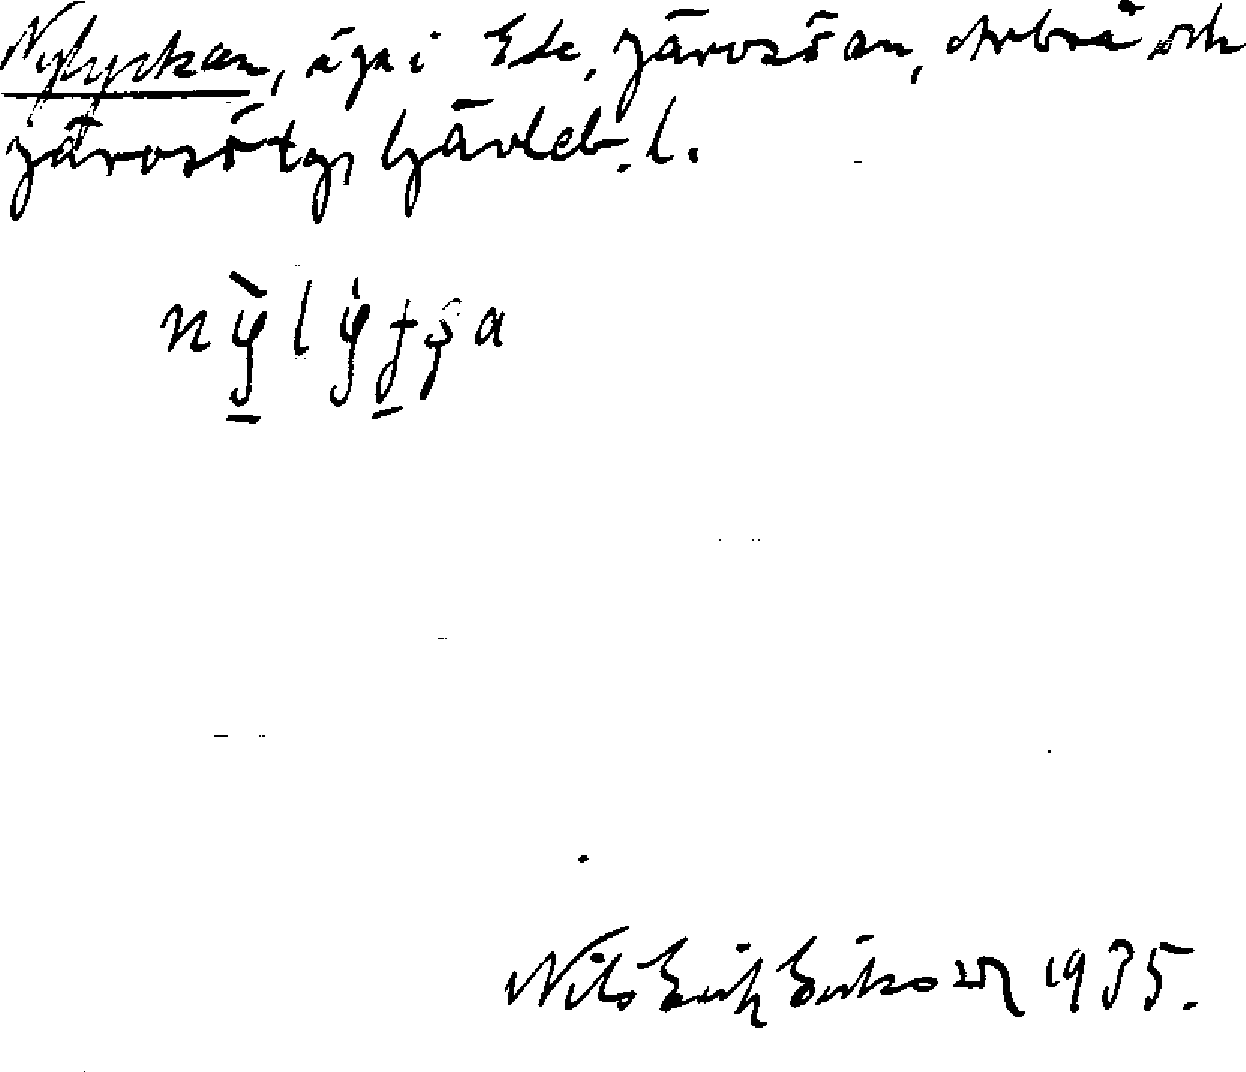 Nylyckan, äga i Ede, Järvsöan, Arbrå och
Järvsö tg, Gävleb. l.
nỳlytʃa
Nils Erik Eriksson 1935.